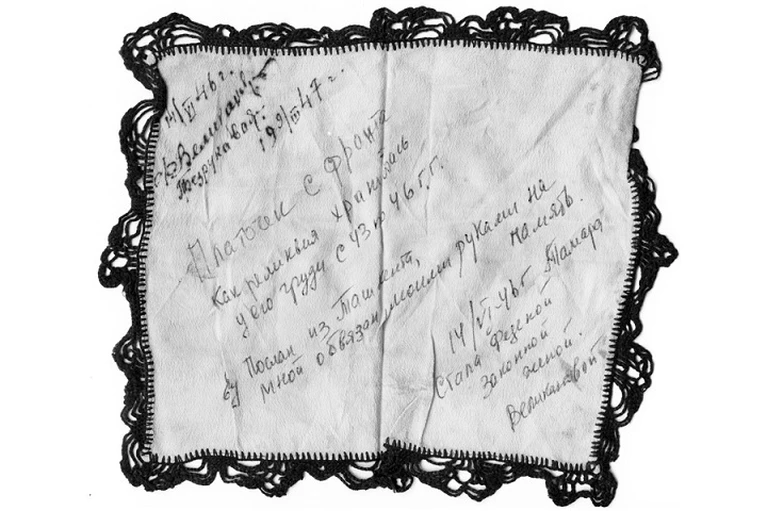 14/VI 46 г.
Великанов
Безрукавой.
199/III 47 г.
Платочек с фронта
Как реликвия хранилась
у его груди с 43 по 46 г.г.
Послан из Ташкента,
мной обвязан моими руками на
память.
14/VI-46 г. Тамара
Стала Фединой
законной
женой.
Великановой